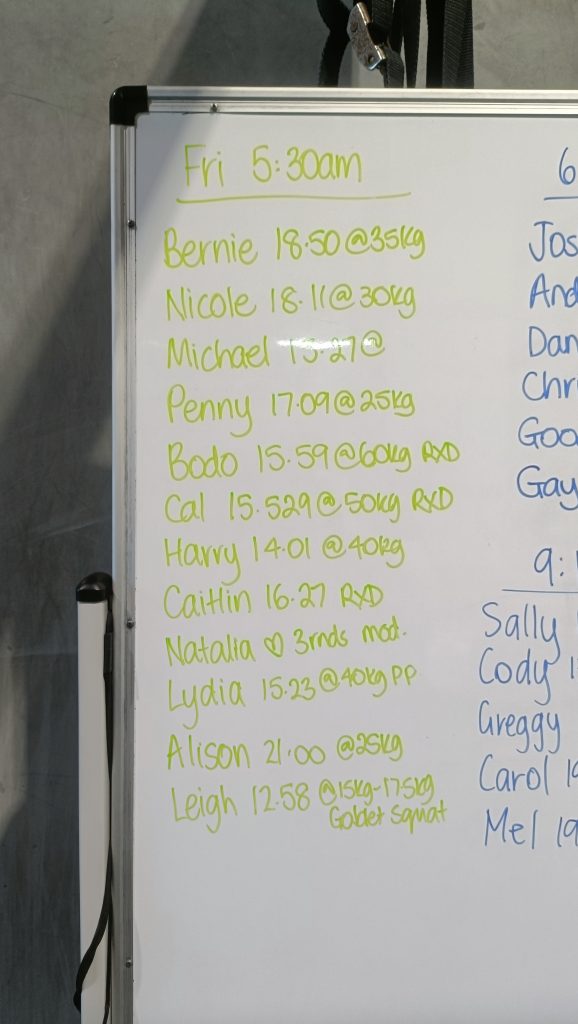 Fri 5:30am
Bernie 18.50 @35kg
Nicole 18.11 @ 30kg
Michael 15.27 @
Penny 17.09 @ 25kg
Bodo 15.59 @60kg RXD
Cal 15.529 @ 50kg RXD
Harry 14.01 @40kg
Caitlin 16.27 RXD
Natalia ♡ 3rnds mod.
Lydia 15.23 @40kg PP
Alison 21.00 @25kg
Leigh 12.58 @15kg-17.5kg
Goblet Squat
6
Jos
And
Dan
Chr
Goo
Gay
9:1
Sally
Cody 1
Greggy
Carol 19
Mel 19